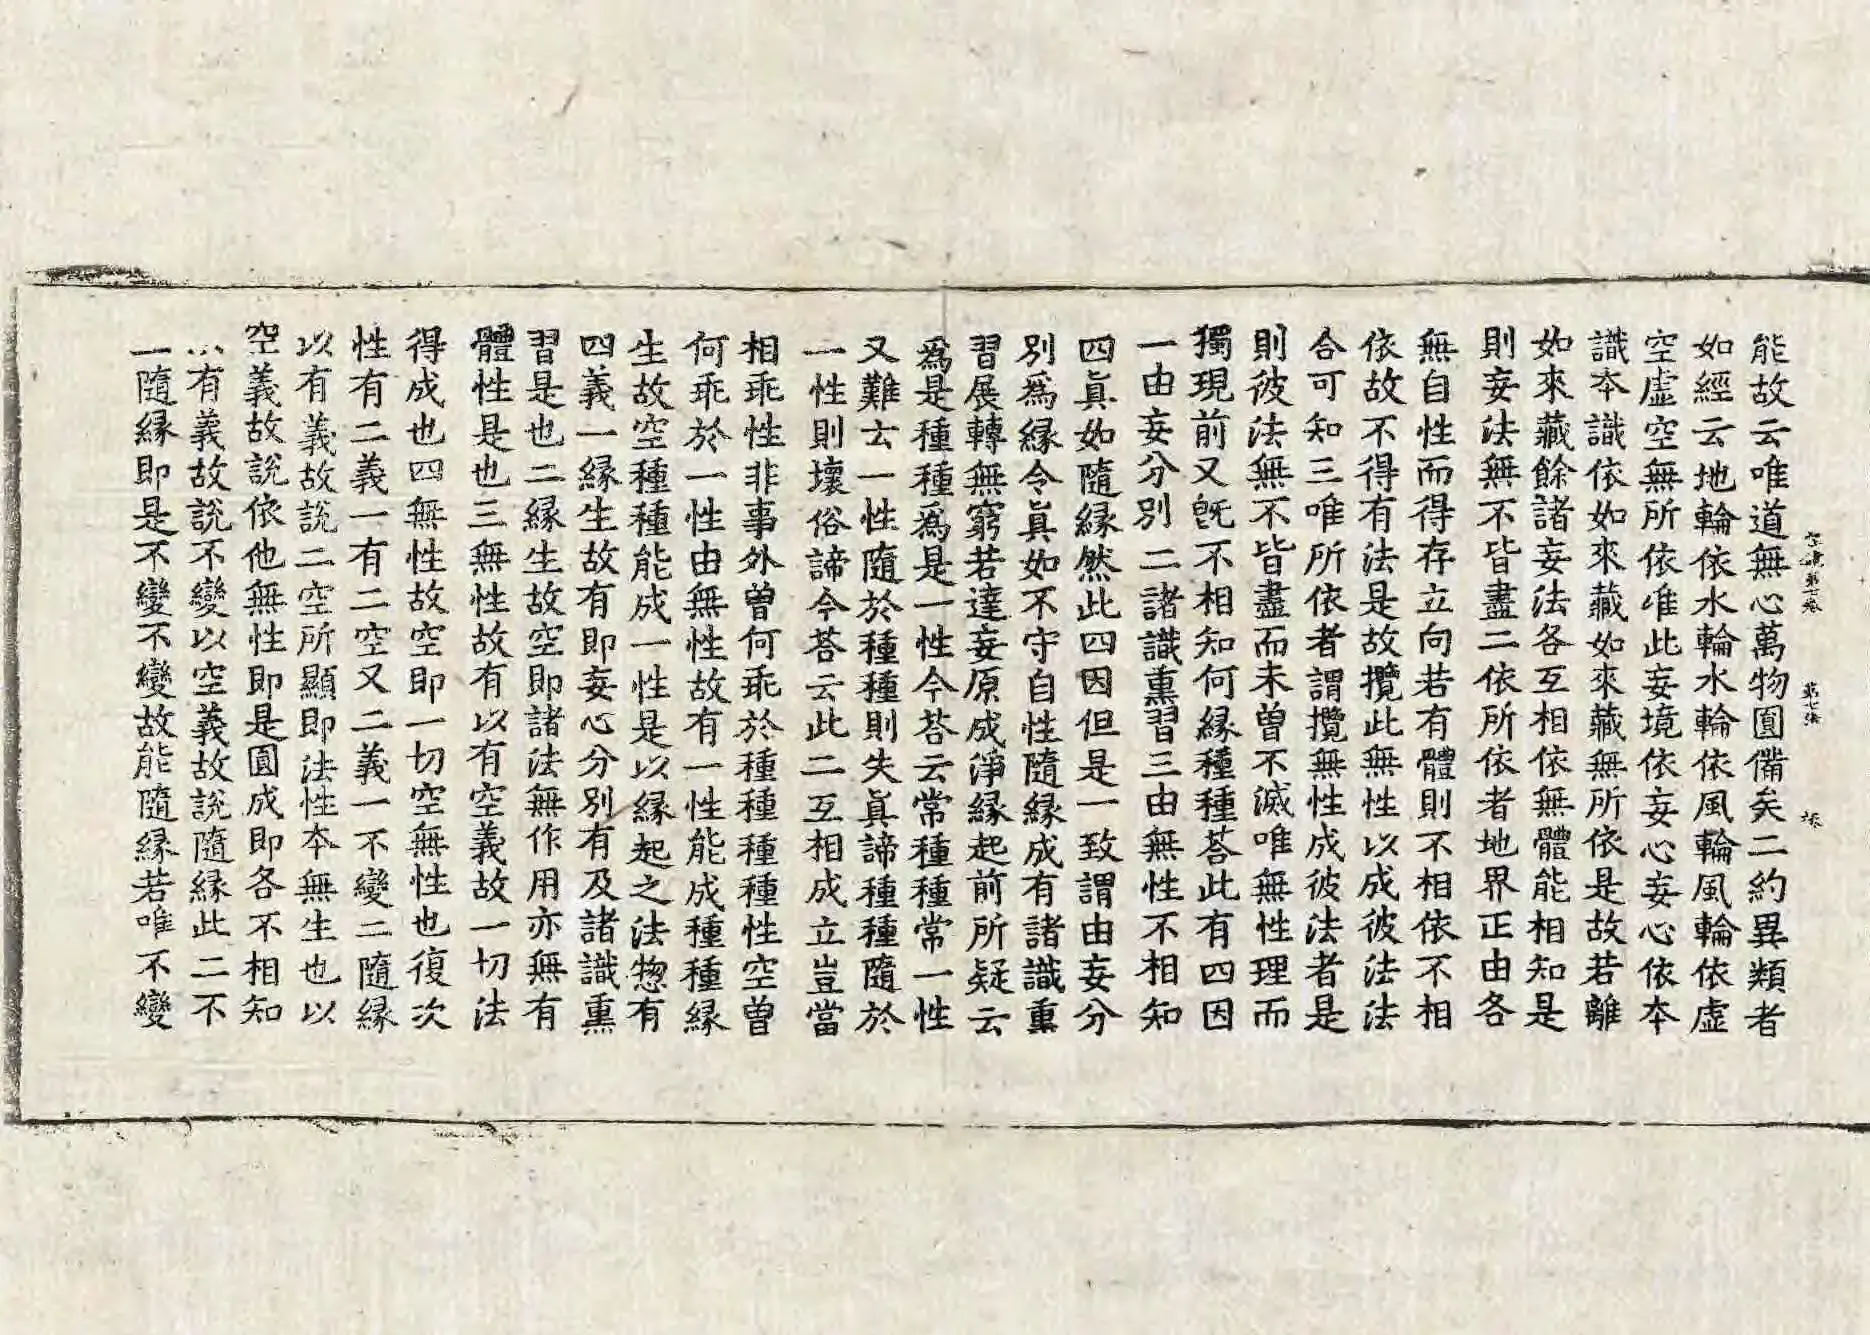 能故云唯道無心萬物圓備矣二約異類者
如經云地輪依水輪水輪依風輪風輪依虛
空虛空無所依唯此妄境依妄心妄心依本
識本識依如來藏如來藏無所依是故若離
如來藏餘諸妄法各互相依無體能相知是
則妄法無不皆盡二依所依者地界正由各
無自性而得存立向若有體則不相依不相
依故不得有法是故攬此無性以成彼法法
合可知三唯所依者謂攬無性成彼法者是
則彼法無不皆盡而未曾不滅唯無性理而
獨現前又旣不相知何緣種種荅此有四因
一由妄分別二諸識熏習三由無性不相知
四眞如隨緣然此四因但是一致謂由妄分
別爲緣令眞如不守自性隨緣成有諸識熏
習展轉無窮若達妄原成淨緣起前所疑云
爲是種種爲是一性今荅云常種種常一性
又難云一性隨於種種則失眞諦種種隨於
一性則壞俗諦今荅云此二互相成立豈當
相乖性非事外曾何乖於種種種種性空曾
何乖於一性由無性故有一性能成種種緣
生故空種種能成一性是以緣起之法惣有
四義一緣生故有即妄心分別有及諸識熏
習是也二緣生故空即諸法無作用亦無有
體性是也三無性故有以有空義故一切法
得成也四無性故空即一切空無性也復次
性有二義一有二空又二義一不變二隨緣
以有義故說二空所顯即法性本無生也以
空義故說依他無性即是圓成即各不相知
以有義故說不變以空義故說隨緣此二不
一隨緣即是不變不變故能隨緣若唯不變